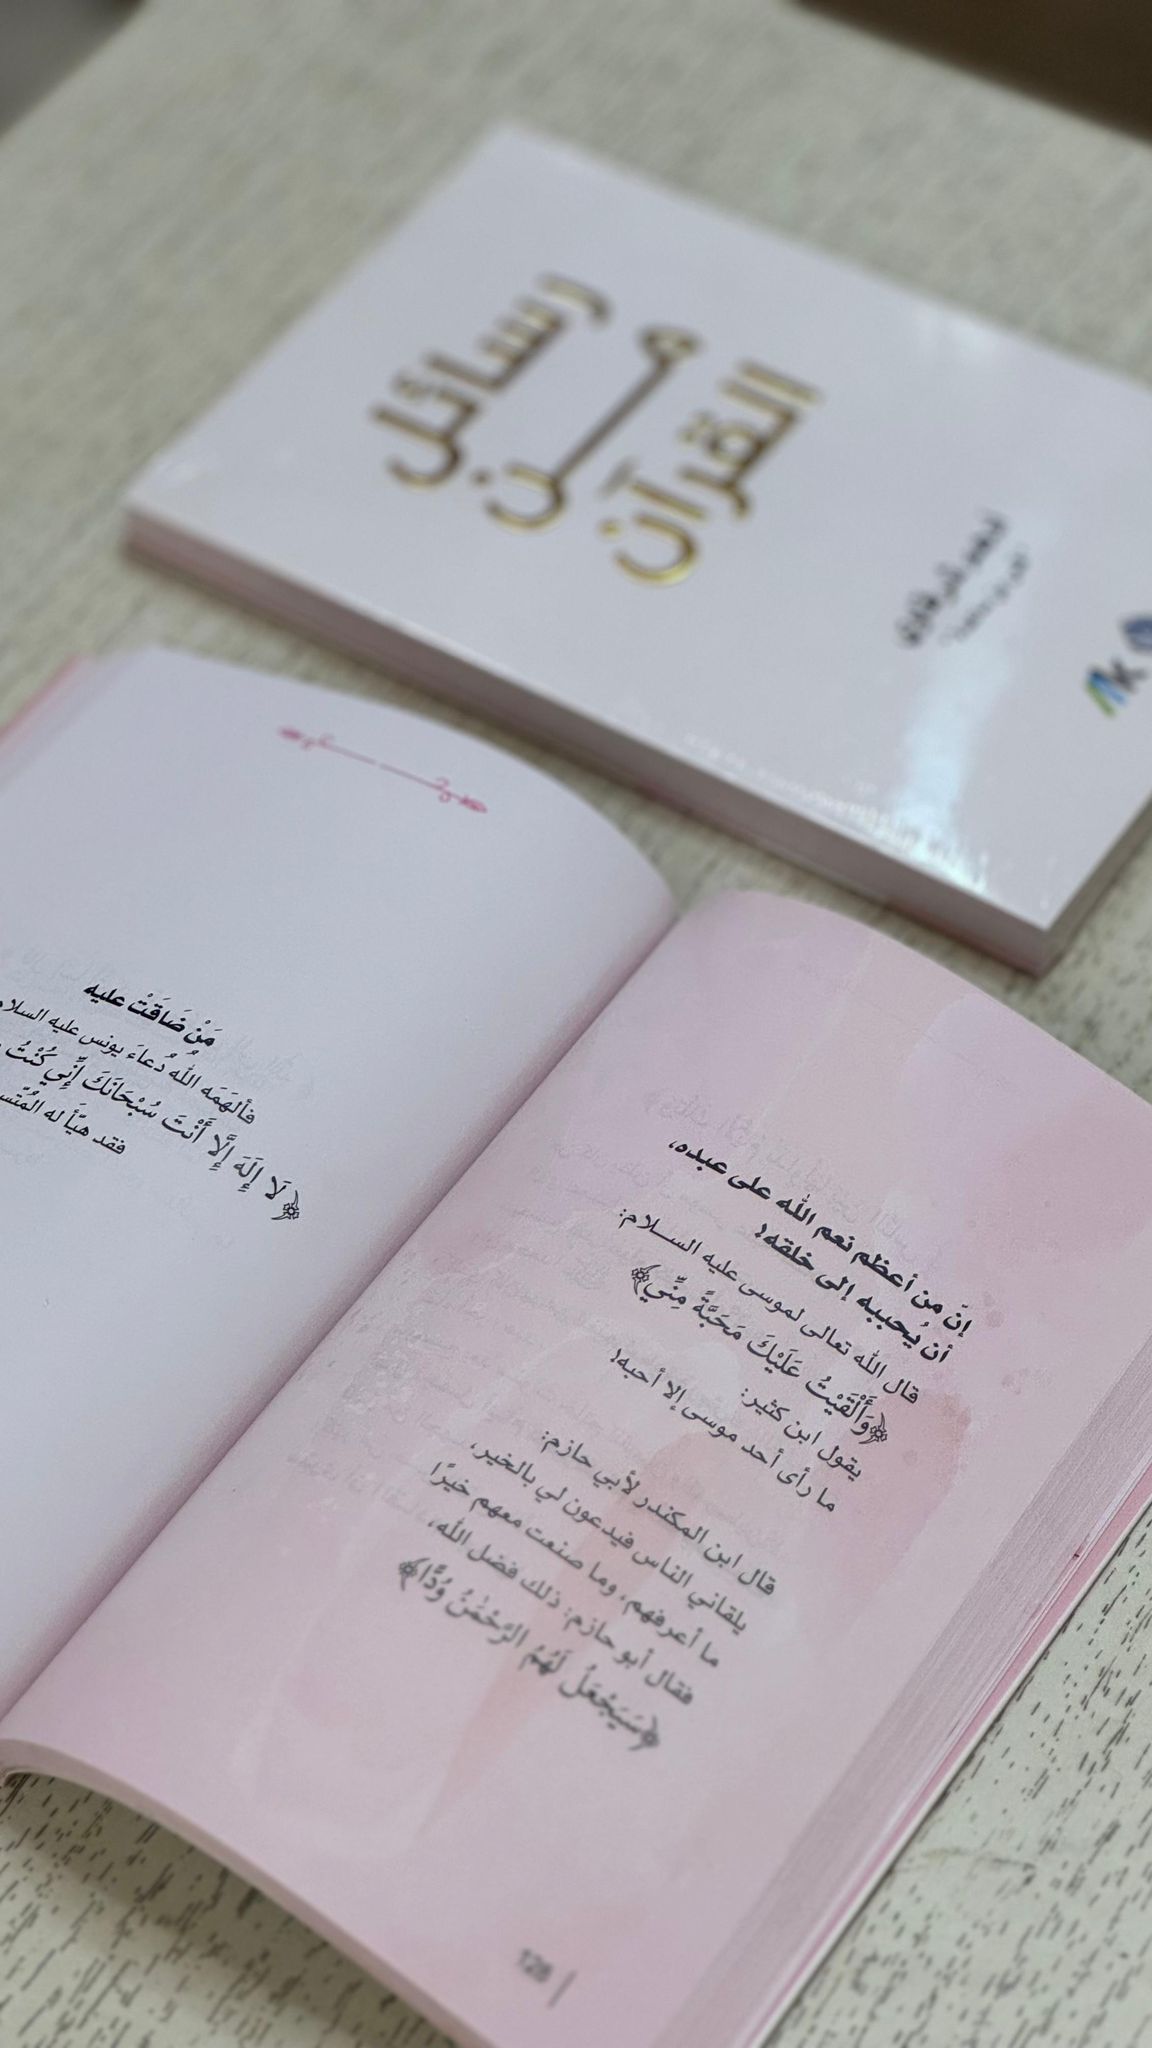 رسائل
من
القرآن
إنّ من أعظم نعم الله على عبده،
أن يُحببه إلى خلقه!
قال الله تعالى لموسى عليه السلام:
﴿وَأَلْقَيْتُ عَلَيْكَ مَحَبَّةً مِّنِّي﴾
يقول ابن كثير:
ما رأى أحد موسى إلا أحبه!
قال ابن المكندر لأبي حازم:
يلقاني الناس فيدعون لي بالخير،
ما أعرفهم، وما صنعت معهم خيرًا
فقال أبو حازم: ذلك فضل الله،
﴿سَيَجْعَلُ لَهُمُ الرَّحْمَٰنُ وُدًّا﴾
128
مَنْ ضَاقَتْ عليه
فألهَمَه اللهُ دُعاءَ يونس عليه
﴿لَا إِلَهَ إِلَّا أَنْتَ سُبْحَانَكَ إِنِّي كُنْتُ
فقد هيّأ له